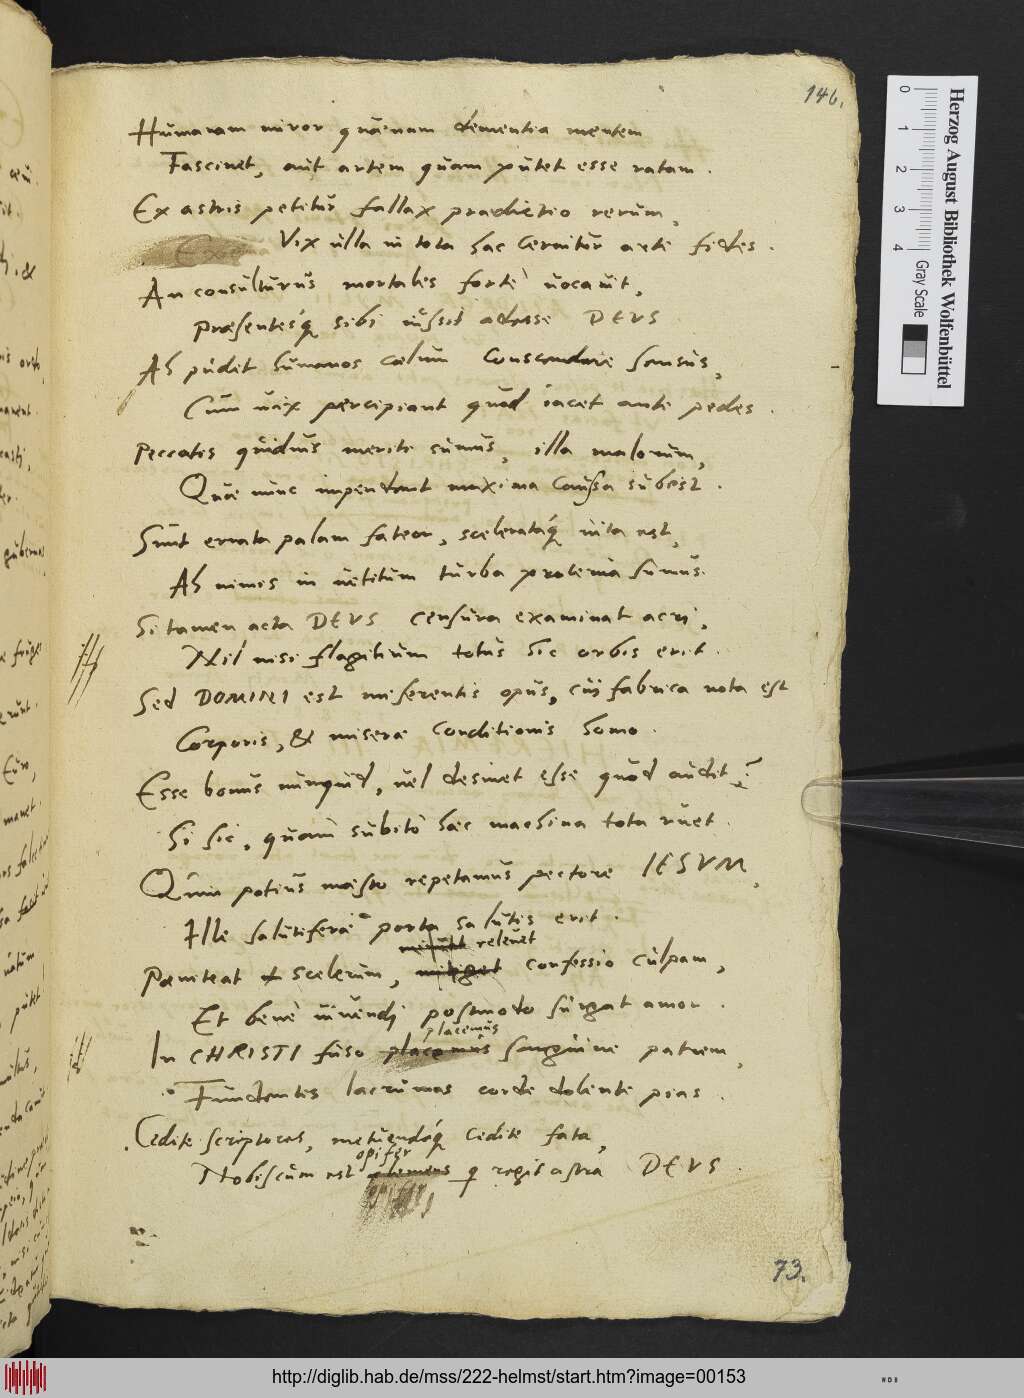 146.
Humanam miror quaenam dementia mentem
Fascinet, aut artem quam putet esse ratam.
Ex astris petitur fallax praedictio rerum,
Vix ulla in tota hac cernitur arte fides.
An consulturus mortales fortè uocauit,
Praesentesq́ue sibi iussit adesse DEUS
Ah pudet humanos coelum conscendere sensus,
Cum uix percipiant quod iacet ante pedes.
Peccatis quiduis meriti sumus, illa malorum,
Quae nunc impendent maxima caussa subest.
Sunt errata palam fateor, scelerataq́ue uita est,
Ah nimis in uetitum turba proterua sumus.
Si tamen acta DEUS censura examinat acri,
Nil nisi flagitium totus hic orbis erit.
Sed DOMINI est miserentis opus, cui fabrica nota est
Corporis, & miserae conditionis homo.
Esse bonus nunquid, uel desinet esse quod audit?
Si sic, quàm subitò haec machina tota ruet.
Quin potius maesto repetamus pectore IESUM,
Ille salutiferae porta salutis erit.
releuet
Poeniteat scelerum, mitiget confessio culpam,
Et benè uiuendi postmodo surgat amor.
placemus
In CHRISTI fuso placemus sanguine patrem,
Fundentes lacrumas corde dolente pias.
Cedite scriptores, metuendaq́ue cedite fata,
opifer
Nobiscum est clemens q regit astra DEUS.
73.
Herzog August Bibliothek Wolfenbüttel
0 1 2 3 4
Gray Scale
http://diglib.hab.de/mss/222-helmst/start.htm?image=00153